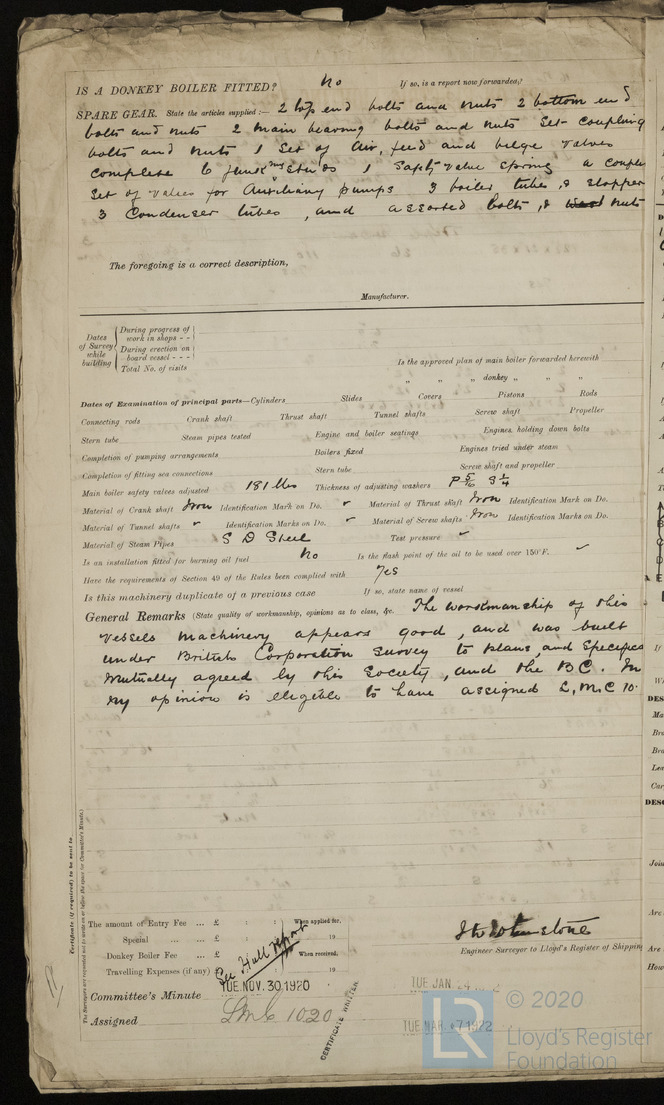 IS A DONKEY BOILER FITTED? No If so, is a report now forwarded?
SPARE GEAR. State the articles supplied :— 2 top end bolts and nuts 2 bottom end
bolts and nuts 2 main bearing bolts and nuts Set coupling
bolts and nuts 1 Set of Air, feed and belge Valves
complete 6 Junk ring studs 1 Safety Value Spring a couple
Set of Valves for Auxiliary pumps 3 boiler tubes & stopper
3 Condenser tubes, and assorted bolts, & nuts
The foregoing is a correct description,
Manufacturer.
Dates of Survey while building
During progress of work in shops - -
During erection on board vessel - - -
Total No. of visits
Is the approved plan of main boiler forwarded herewith
" " " donkey " " "
Dates of Examination of principal parts—Cylinders Slides Covers Pistons Rods
Connecting rods Crank shaft Thrust shaft Tunnel shafts Screw shaft Propeller
Stern tube Steam pipes tested Engine and boiler seatings Engines holding down bolts
Completion of pumping arrangements Boilers fixed Engines tried under steam
Completion of fitting sea connections Stern tube Screw shaft and propeller
Main boiler safety valves adjusted 181 lbs Thickness of adjusting washers P 5/16 S 1/4
Material of Crank shaft Iron Identification Mark on Do. " Material of Thrust shaft Iron Identification Mark on Do.
Material of Tunnel shafts " Identification Marks on Do. " Material of Screw shafts Iron Identification Marks on Do.
Material of Steam Pipes S D Steel Test pressure
Is an installation fitted for burning oil fuel No Is the flash point of the oil to be used over 150°F. ✓
Have the requirements of Section 49 of the Rules been complied with Yes
Is this machinery duplicate of a previous case If so, state name of vessel
General Remarks (State quality of workmanship, opinions as to class, &c. The workmanship of this
vessels machinery appears good, and was built
under British Corporation Survey to plans, and Specifics
mutually agreed by this Society, and the BC. In
my opinion is elegible to have assigned L.M.C 10.
Certificate (if required) to be sent to
The Surveyors are requested not to write on or below the space for Committee's Minute.
The amount of Entry Fee ... £ : : When applied for,
Special ... ... £ : : 19
Donkey Boiler Fee ... £ : : When received,
Travelling Expenses (if any) £ : : 19
See Hull report
Johnstone
Engineer Surveyor to Lloyd's Register of Shipping
Committee's Minute TUE. NOV. 30. 1920
TUE JAN
Assigned LMC 10.20
CERTIFICATE WRITTEN
TUE MAR. 7 1922
© 2020
LR
Lloyd's Register
Foundation